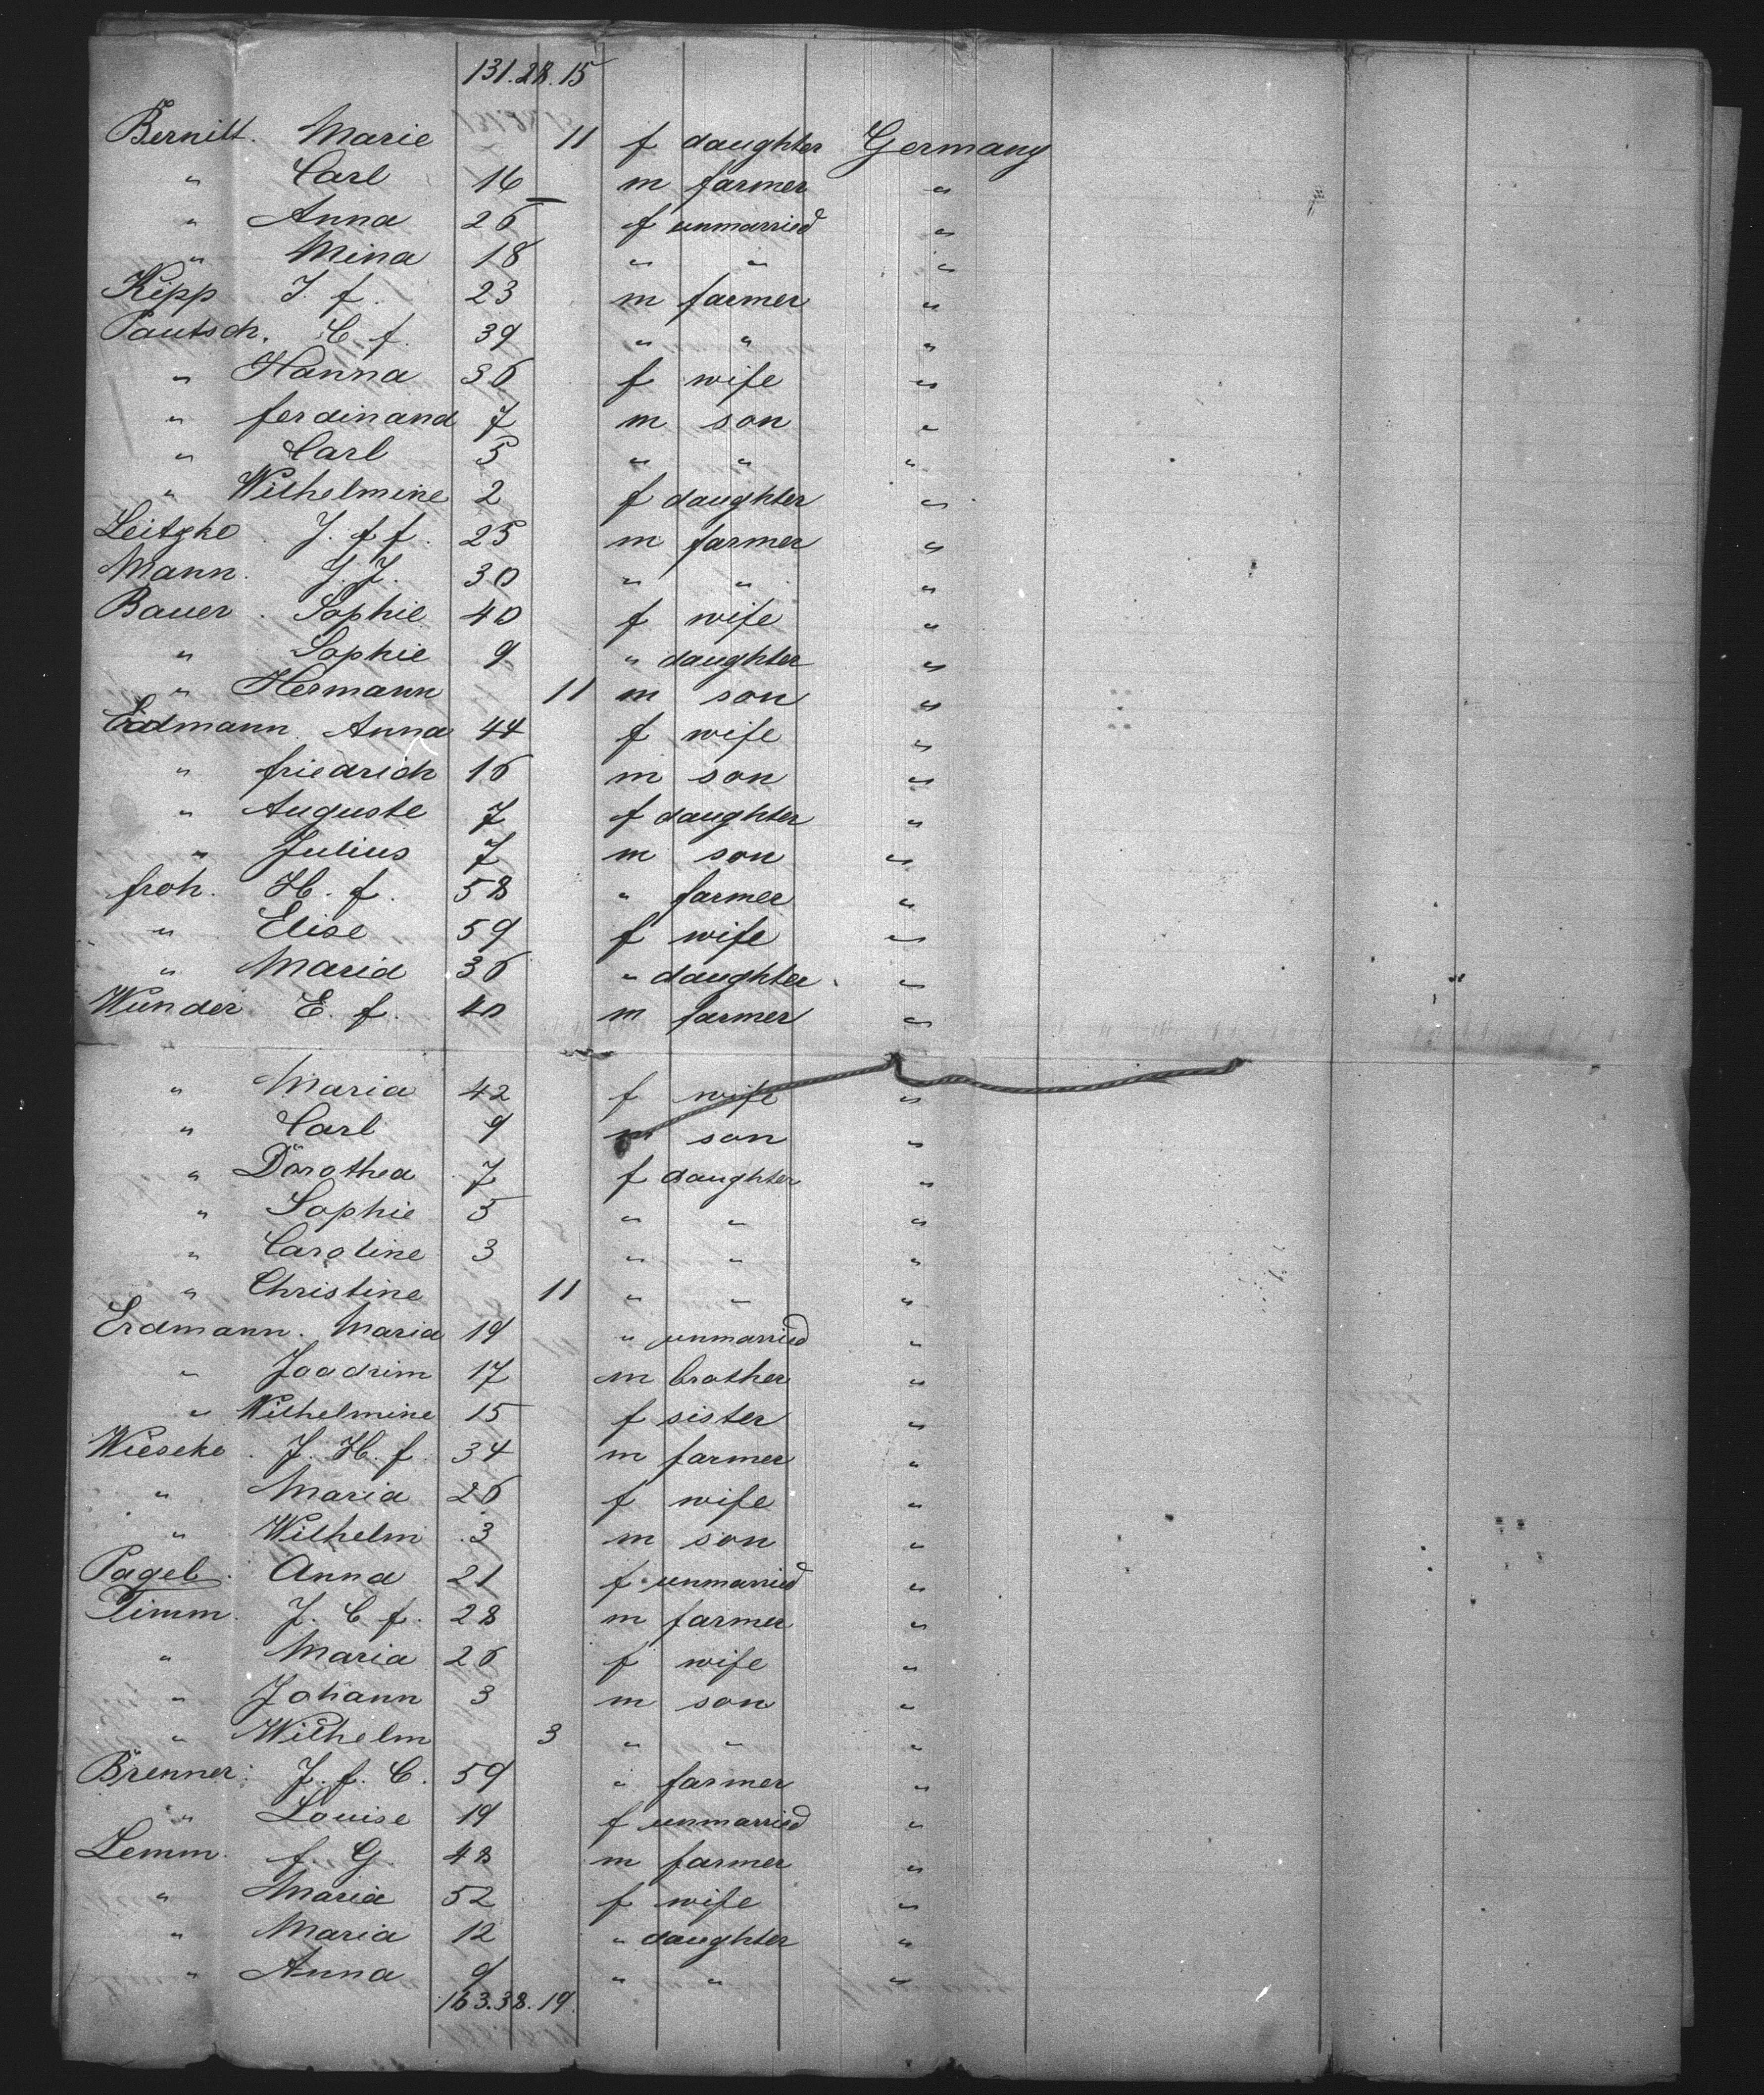 131.28.15
Bernitt. Marie 11 f daughter Germany
" Carl 16 m farmer "
" Anna 26 f unmarried "
" Mina 18 " " "
Kipp J. f. 23 m farmer "
Pautsch. C. f. 39 " " "
" Hanna 36 f wife "
" ferdinand 7 m son "
" Carl 5 " " "
" Wilhelmine 2 f daughter "
Leitzke. J. f. f. 25 m farmer "
Mann. J. J. 30 " " "
Bauer. Sophie 40 f wife "
" Sophie 9 " daughter "
" Hermann 11 m son "
Erdmann. Anna 44 f wife "
" friedrich 16 m son "
" Auguste 7 f daughter "
" Julius 7 m son "
froh. H. f. 58 " farmer "
" Elise 59 f wife "
" Maria 36 " daughter "
Wunder E. f. 40 m farmer "
" Maria 42 f wife "
" Carl 9 m son "
" Dorothea 7 f daughter "
" Sophie 5 " " "
" Caroline 3 " " "
" Christine 11 " " "
Erdmann. Maria 19 " unmarried "
" Joachim 17 m brother "
" Wilhelmine 15 f sister "
Wieseke. J. H. f. 34 m farmer "
" Maria 26 f wife "
" Wilhelm 3 m son "
Pagel. Anna 21 f unmarried "
Timm. J. C. f. 28 m farmer "
" Maria 26 f wife "
" Johann 3 m son "
" Wilhelm 3 " " "
Brenner: J. f. C. 59 " farmer "
" Louise 19 f unmarried "
Lemm. f. G. 48 m farmer "
" Maria 52 f wife "
" Maria 12 " daughter "
" Anna 9 " " "
163.38.19.